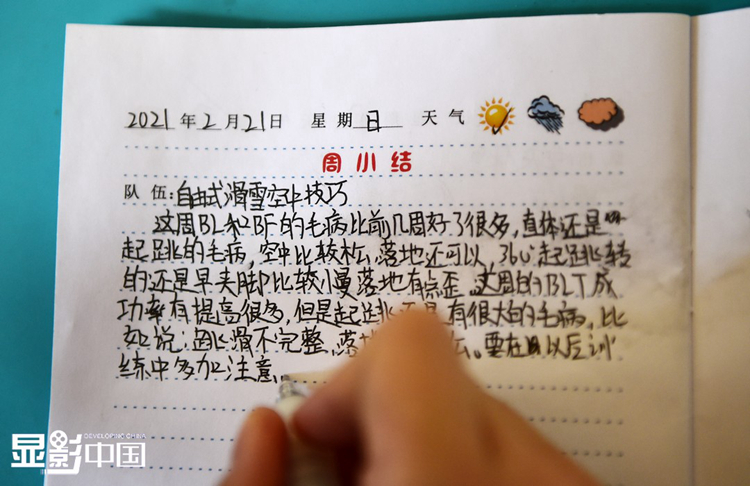 2021年2月21日 星期日 天气
周小结
队伍:自由式滑雪空中技巧
这周BL和BF的毛病比前几周好了很多,直体还是
起跳的毛病,空中比较松,落地还可以,360°起跳转
的还是早夹脚比较慢落地有点歪,这周的BLT成
功率有提高很多,但是起跳还是有很大的毛病,比
如说:跳滑不完整,落。要在以后训
练中多加注意.
显影中国
DEVELOPING CHINA